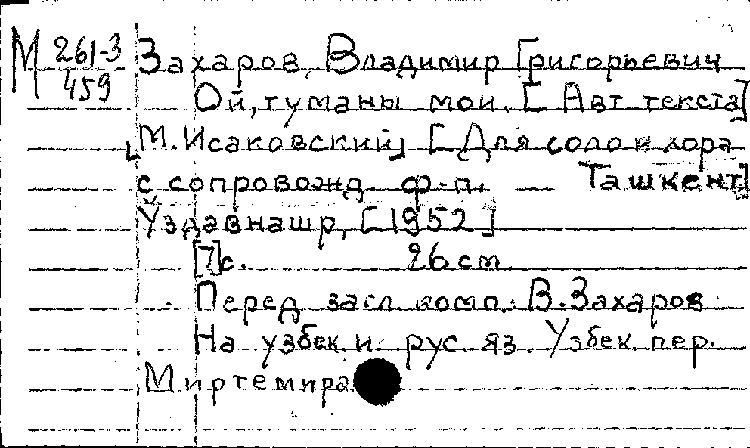 М 261-3/459 Захаров, Владимир Григорьевич
Ой, туманы мои. [Авт текста
М. Исаковский] [Для соло и хора
с сопровожд. ф-п. — Ташкент]
Ўздавнашр, [1952]
[7]с. 26 см
Перед засл комп. В. Захаров
На узбек. и рус. яз. Узбек. пер.
Миртемира